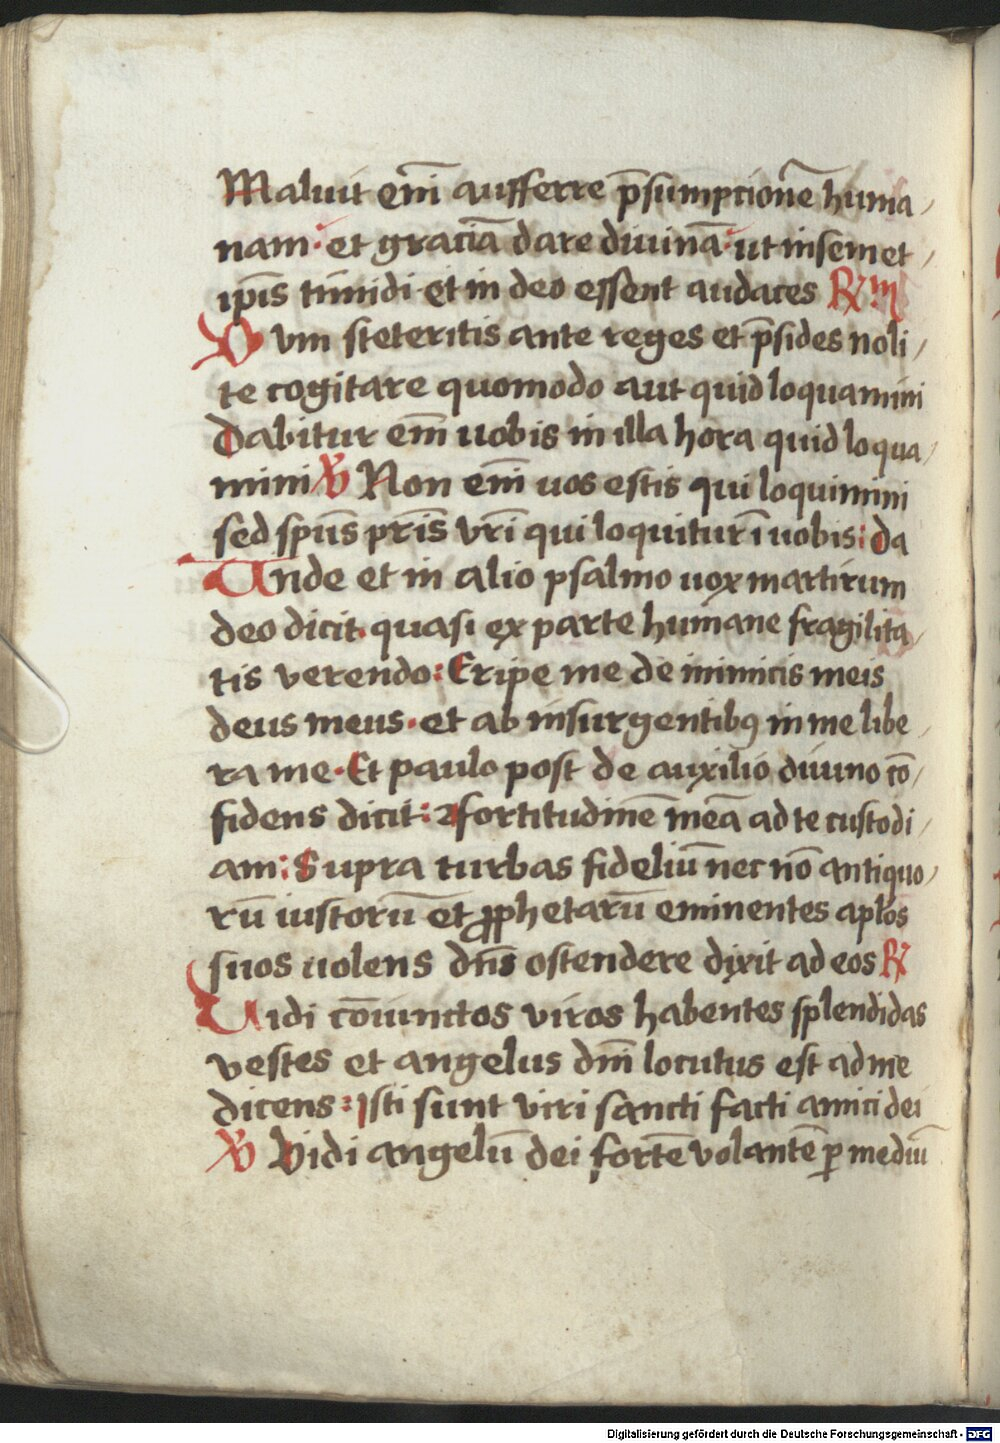 Maluit em̄ aufferre p̄sumpcionē huma/
nam· et graciā dare diuinā· ut in semet/
ip̄is timidi· et in deo essent audaces R/ m̄
Dum steteritis ante reges et p̄sides noli/
te cogitare quomodo aut quid loquamini
Dabitur em̄ uobis in illa hora quid loqua/
mini V̸ Non em̄ uos estis qui loquimini
sed spūs pr̄is vr̄i qui loquitur ī uobis: Da
Unde et in alio psalmo uox martirum
deo dicit. quasi ex parte humane fragilita/
tis verendo: Eripe me de inimicis meis
deus meus· et ab insurgentibꝰ in me libe/
ra me· Et paulo post de auxilio diuino cō/
fidens dicit: fortitudinē meā ad te custodi/
am: Supra turbas fideliū nec nō antiquo/
rū iustorū et ꝓphetarū eminentes aplōs
suos uolens dn̄s ostendere dixit ad eos R/
Uidi cōiunctos viros habentes splendidas
vestes et angelus dn̄i locutus est ad me
dicens: Isti sunt viri sancti facti amici dei
V̸ Vidi angelū dei fortē volantē ꝑ mediū
Digitalisierung gefördert durch die Deutsche Forschungsgemeinschaft - DFG